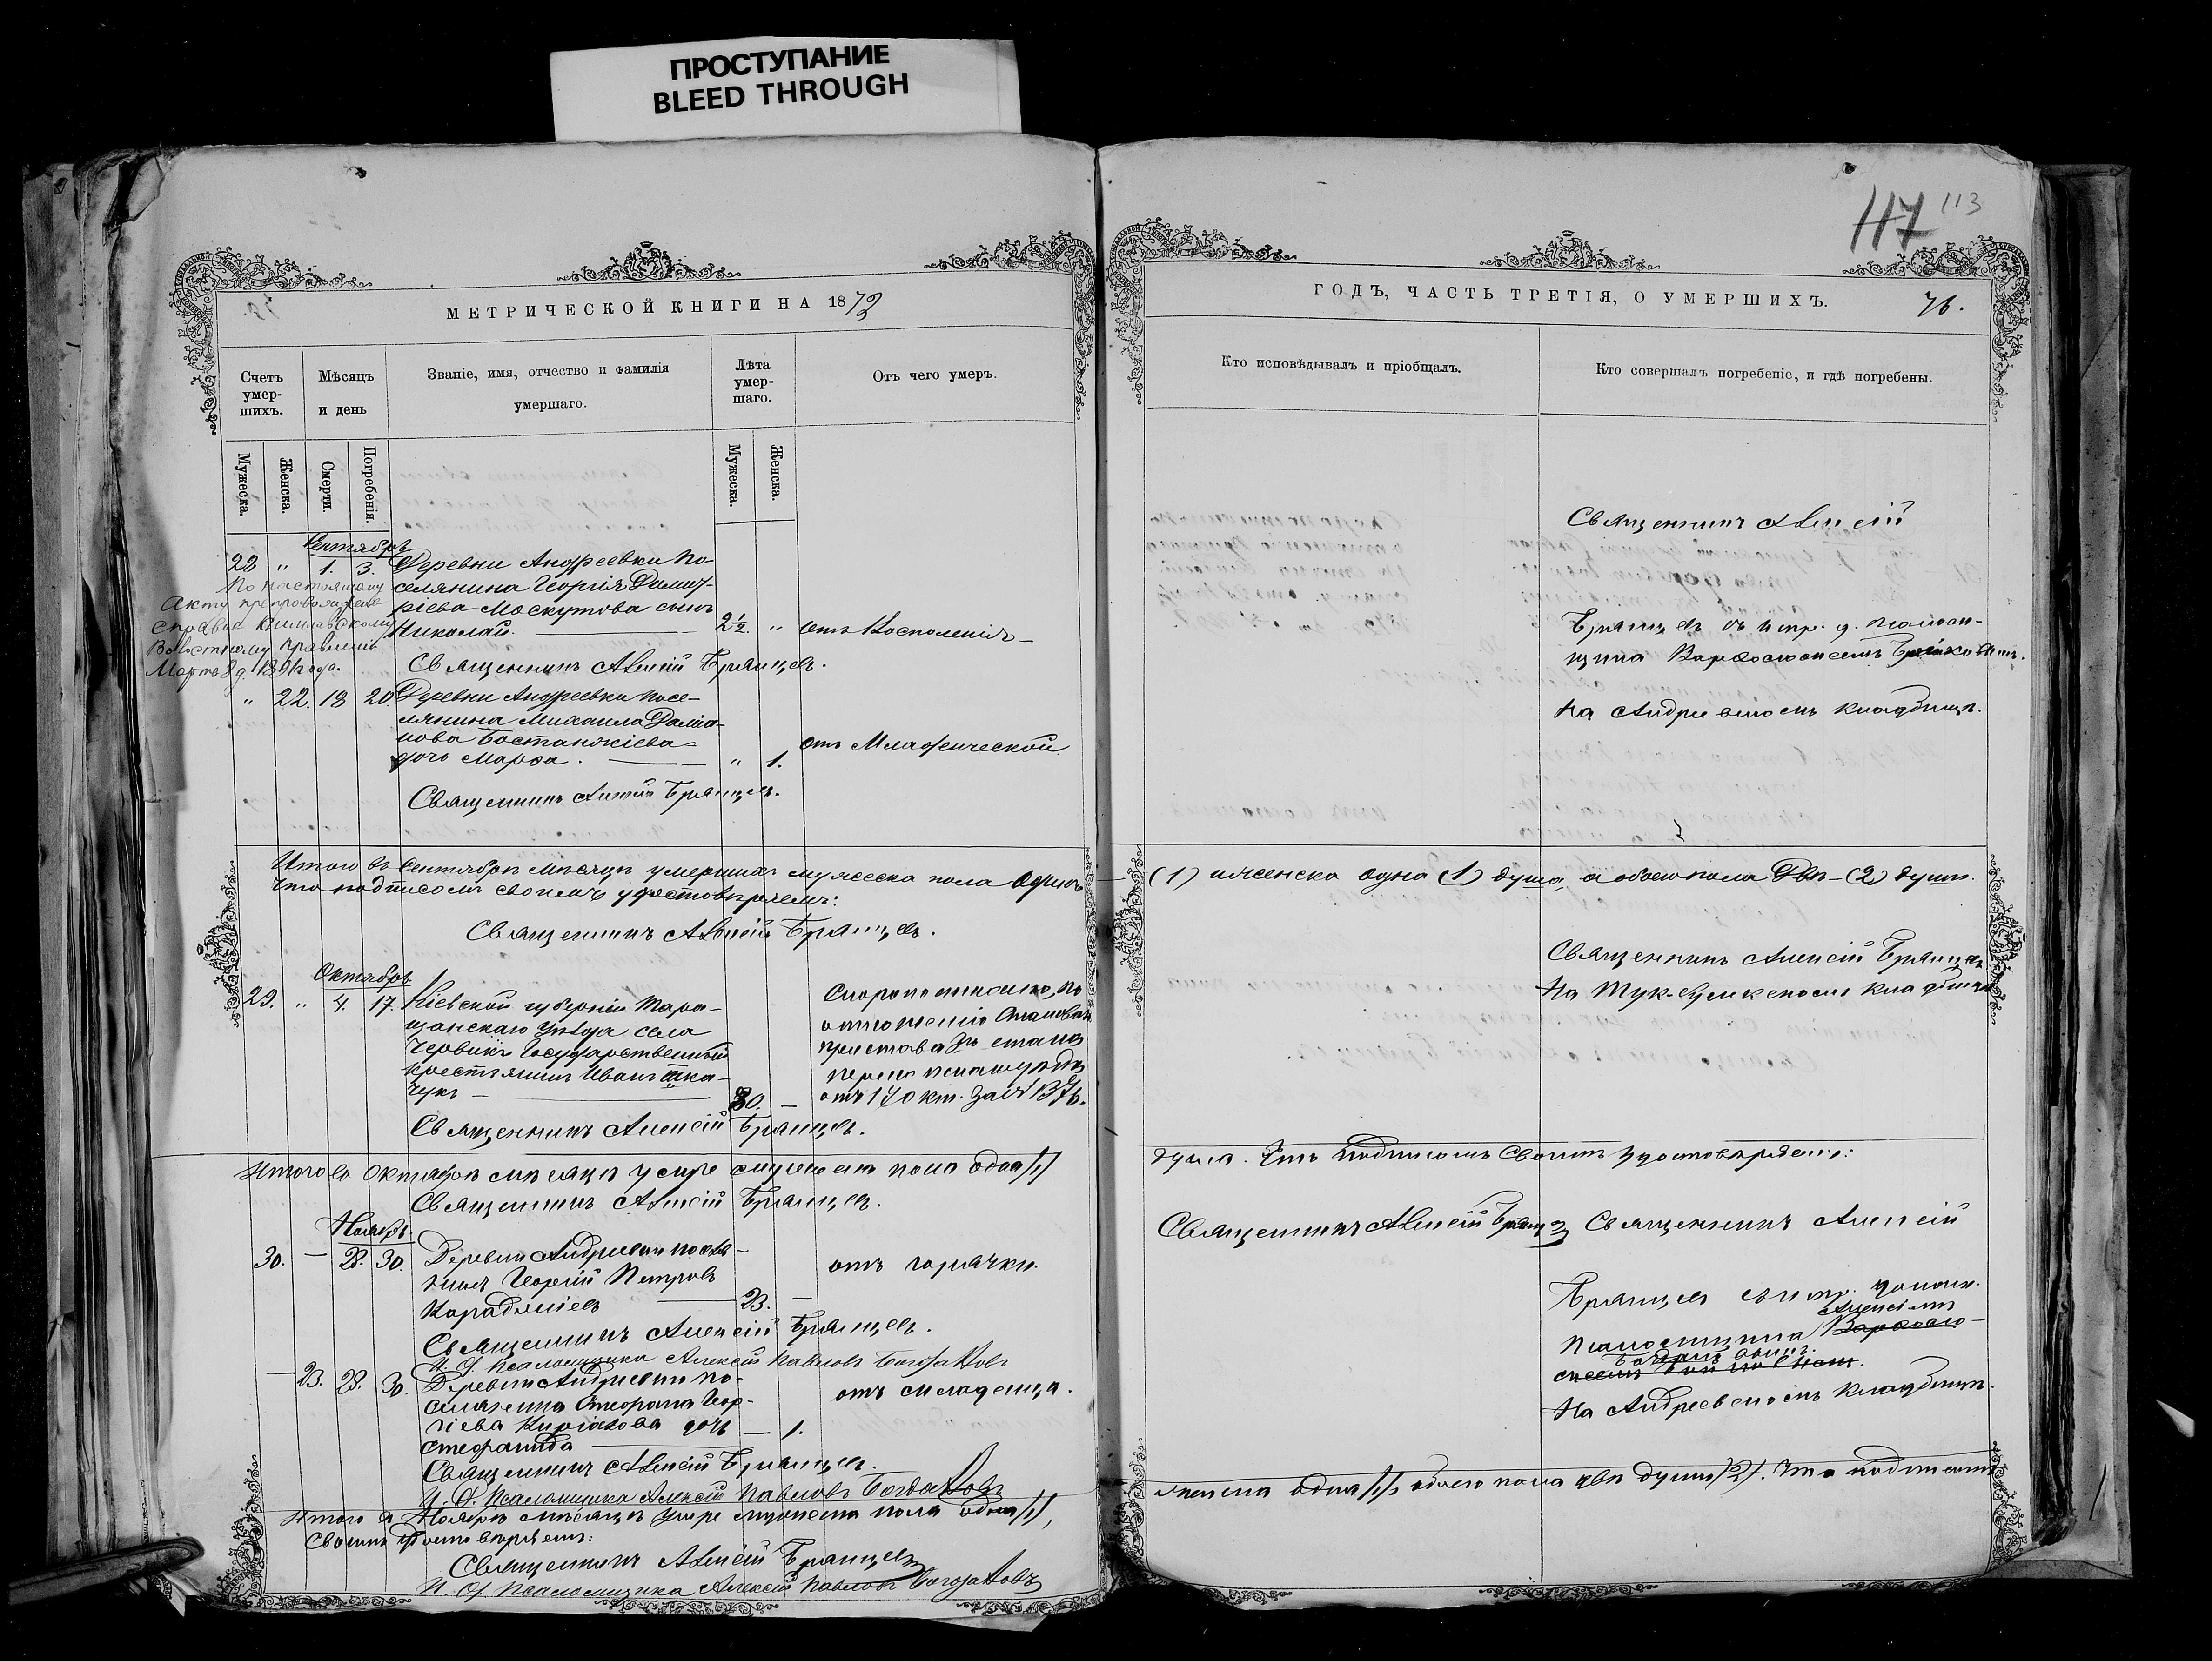 ПРОСТУПАНИЕ
BLEED THROUGH
117 113
МЕТРИЧЕСКОЙ КНИГИ НА 1872
Счетъ умер-шихъ.
Мѣсяцъ и день
Званіе, имя, отчество и фамилія умершаго.
Лѣта умер-шаго.
Отъ чего умеръ.
Мужеска.
Женска.
Смерти.
Погребенія.
Мужеска.
Женска.
Сентябрь
22 " 1. 3. Деревни Андреевки по-
селянина Георгія Дмит-
ріева Москутова сынъ
Николай. 2½. " отъ Воспаленія
По настоящему
Акту препровождено
справка
Волостному Правленію
Марта 8 д. 1891 года.
Священникъ Алексій Брянцевъ.
" 22. 18 20 Деревни Андреевки посе-
лянина Михаила Даміа-
нова Бостанжіева
дочь Марѳа. " 1. отъ Младенческой
Священникъ Алексій Брянцевъ.
Итого въ Сентябрѣ мѣсяцѣ умершихъ мужеска пола Одинъ
Что подписомъ своимъ удостовѣряемъ:
Священникъ Алексій Брянцевъ.
Октябрь
29. " 4. 17. Кіевской губерніи Тара-
щанскаго уѣзда села
Червикъ Государственный
крестьянинъ Иванъ Ткa-
чукъ 30. —
Скоропостижно, по
отношенію Становаго
пристава 2го стана
отъ 17 Окт. за №1376.
Священникъ Алексій Брянцевъ.
Итого въ Октябрѣ мѣсяцѣ умре мужеска пола одна /1/
Священникъ Алексій Брянцевъ.
Ноябрь.
30. — 28. 30. Деревни Андреевки посел-
нинъ Георгій Петровъ
Караджіевъ 23. — отъ горячки.
Священникъ Алексій Брянцевъ.
И. д. Псаломщика Алексій Павловъ Богдановъ
— 23. 28. 30. Деревни Андреевки по-
селянина Стефана Геор-
гіева Киріакова дочь — 1. отъ младенца.
Стефанида
Священникъ Алексій Брянцевъ.
И. д. Псаломщика Алексій Павловъ Богдановъ
Итого въ Ноябрѣ мѣсяцѣ умре мужеска пола одна /1/,
своимъ удостовѣряемъ:
Священникъ Алексій Брянцевъ
И. д. Псаломщика Алексій Павловъ Богдановъ
ГОДЪ, ЧАСТЬ ТРЕТІЯ, О УМЕРШИХЪ. 76.
Кто исповѣдывалъ и пріобщалъ.
Кто совершалъ погребеніе, и гдѣ погребены.
Священникъ Алексій
Брянцевъ съ испр. д. псалом-
щика Варѳоломеемъ
На Андреевскомъ кладбищѣ.
(1) и женска одна (1) душа, а обоего пола Двѣ — (2) души.
Священникъ Алексій Брянцевъ
На кладбищѣ
душа. Что подписомъ своимъ удостовѣряемъ:
Священникъ Алексій Брянцевъ
Священникъ Алексій
Брянцевъ съ испр. должн.
псаломщика Алексіемъ
Богдановымъ.
На Андреевскомъ кладбищѣ.
женска одна /1/, обоего пола двѣ души /2/. Что подписомъ